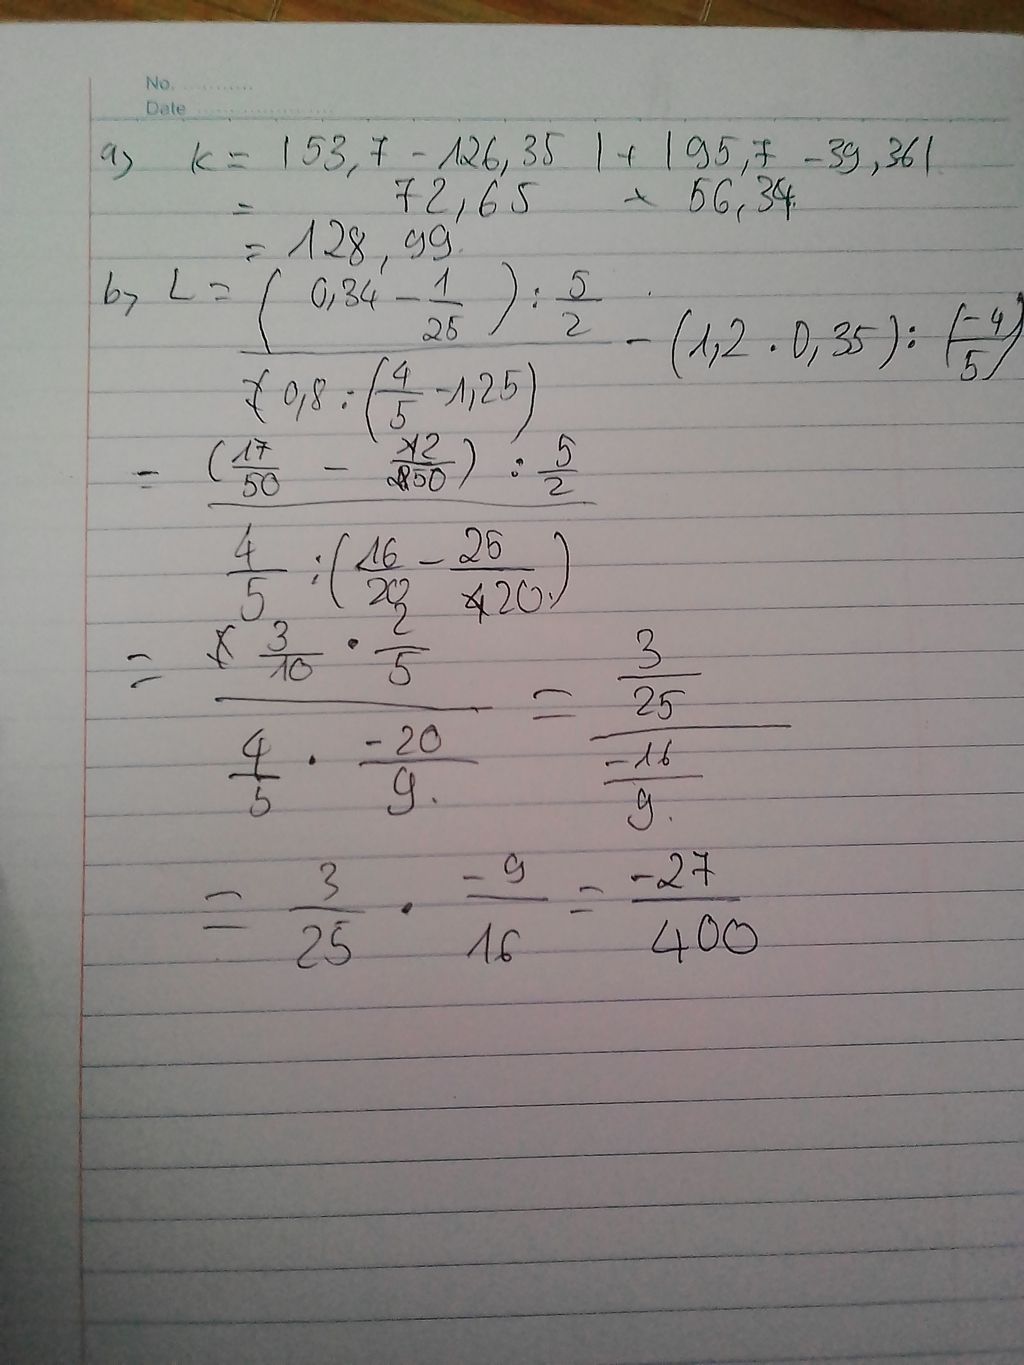 No. ............
Date .....................
a, K = |53,7 - 126,35| + |95,7 - 39,36|
= 72,65 + 56,34
= 128,99.
b, L = (0,34 - 1/25) : 5/2 / 0,8 : (4/5 - 1,25) - (1,2 . 0,35) : (-4/5)
= (17/50 - 2/50) : 5/2 / 4/5 : (16/20 - 25/20)
= 3/10 . 2/5 / 4/5 . -20/9 = 3/25 / -16/9
= 3/25 . -9/16 = -27/400